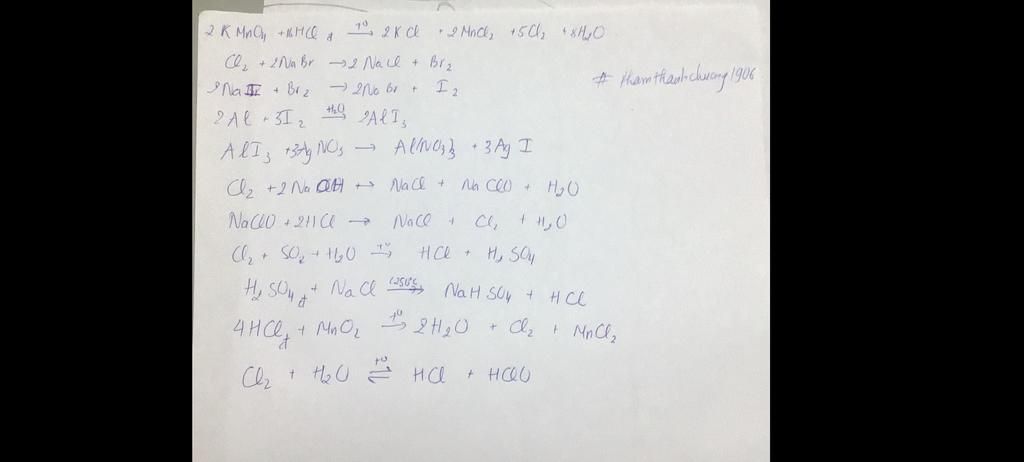 2KMnO4 + 16HCl đ t0→ 2KCl + 2MnCl2 + 5Cl2 + 8H2O
Cl2 + 2NaBr → 2NaCl + Br2
# thamthanhchuong1906
2NaI + Br2 → 2NaBr + I2
2Al + 3I2 +H2O→ 2AlI3
AlI3 + 3AgNO3 → Al(NO3)3 + 3AgI
Cl2 + 2NaOH → NaCl + NaClO + H2O
NaClO + 2HCl → NaCl + Cl2 + H2O
Cl2 + SO2 + H2O t0→ HCl + H2SO4
H2SO4 đ + NaCl ≤250°C→ NaHSO4 + HCl
4HCl đ + MnO2 t0→ 2H2O + Cl2 + MnCl2
Cl2 + H2O t0⇌ HCl + HClO